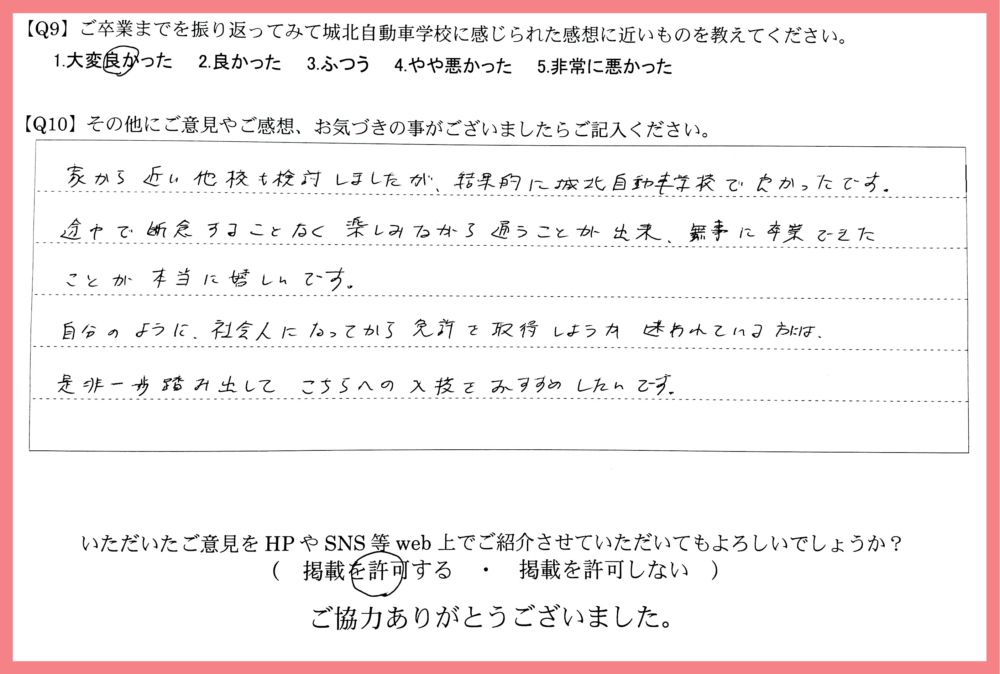 【Q9】ご卒業までを振り返ってみて城北自動車学校に感じられた感想に近いものを教えてください。
1.大変良かった 2.良かった 3.ふつう 4.やや悪かった 5.非常に悪かった
【Q10】その他にご意見やご感想、お気づきの事がございましたらご記入ください。
家から近い他校も検討しましたが、結果的に城北自動車学校で良かったです。
途中で断念することなく楽しみながら通うことが出来、無事に卒業できた
ことが本当に嬉しいです。
自分のように、社会人になってから免許を取得しようか迷われている方には、
是非一歩踏み出してこちらへの入校をおすすめしたいです。
いただいたご意見を HP や SNS 等 web 上でご紹介させていただいてもよろしいでしょうか?
( 掲載を許可する ・ 掲載を許可しない )
ご協力ありがとうございました。